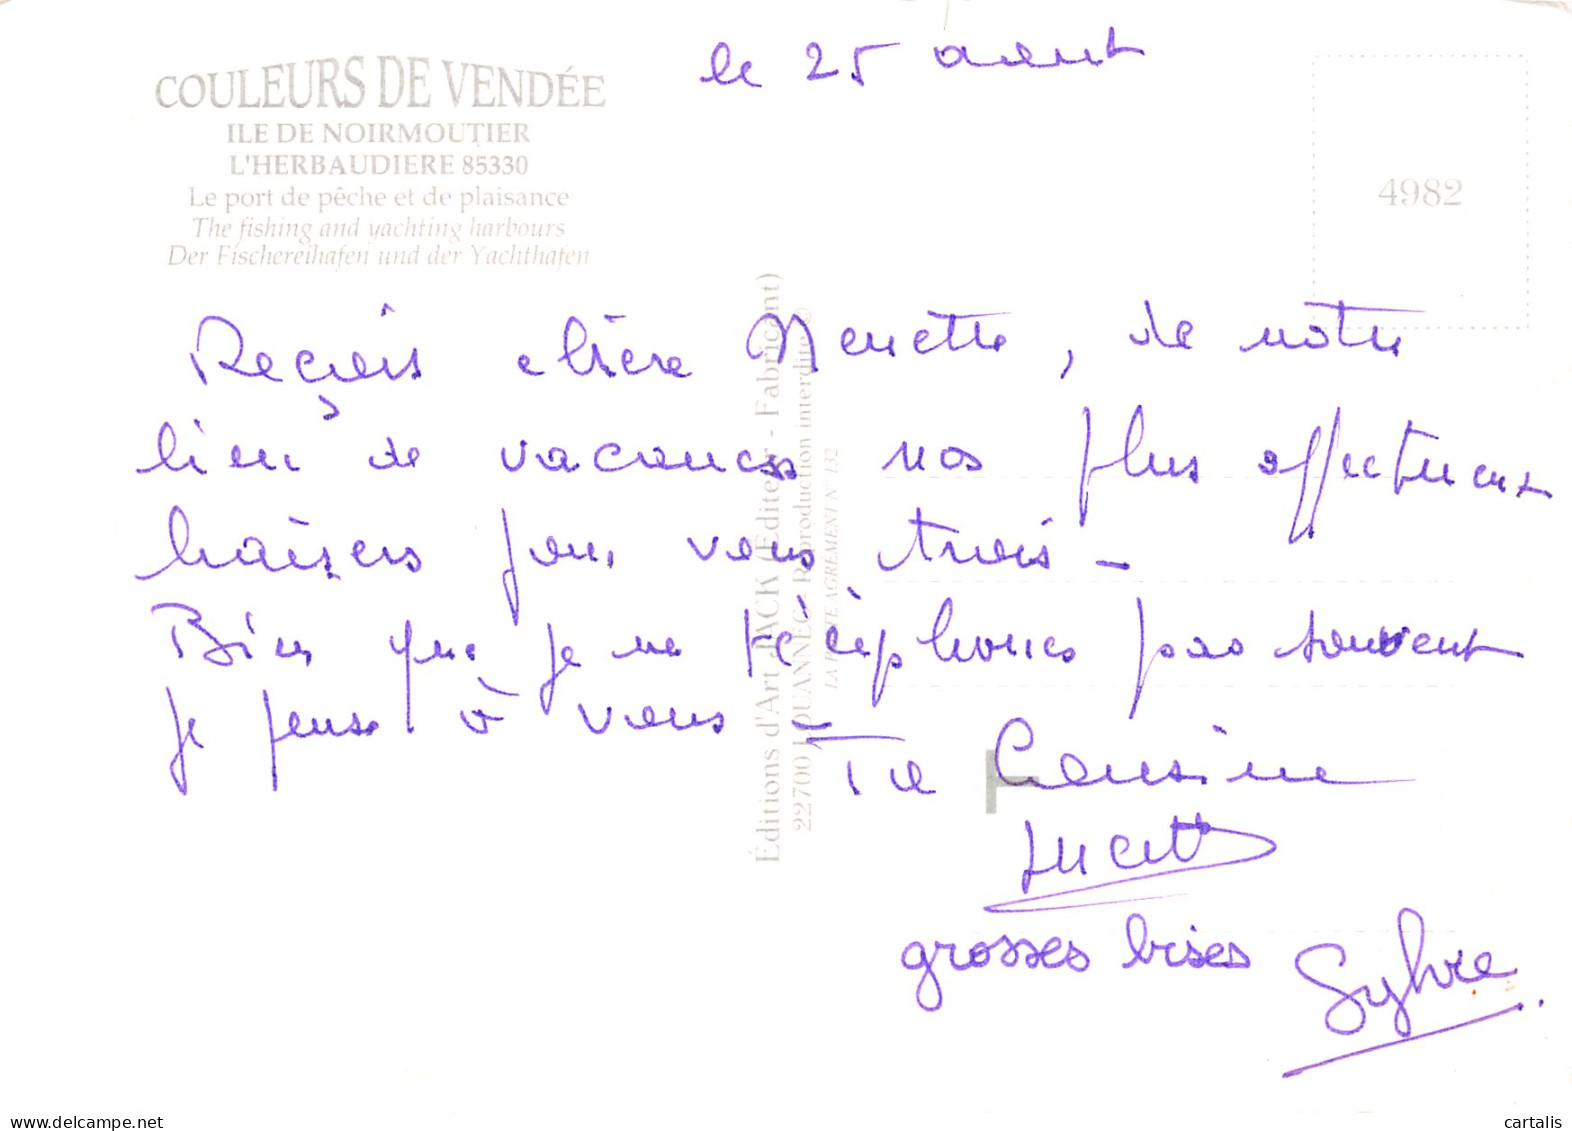 le 25 aout
COULEURS DE VENDÉE
ILE DE NOIRMOUTIER
L'HERBAUDIERE 85330
Le port de pêche et de plaisance
The fishing and yachting harbours
Der Fischereihafen und der Yachthafen
4982
Reçois chère Nenette, de notre
lieu de vacances nos plus affectueux
baisers pour vous trois -
Bien que je ne téléphones pas souvent
je pense à vous -
Ta Cousine
Lucette
grosses bises Sylvie
Éditions d'Art JACK (Editeur - Fabricant)
22700 LOUANNEC - Reproduction interdite ©
AGREMENT N° 132
cartalis